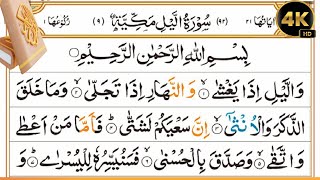 اٰیاتها ٢١ (٩٢) سُوْرَةُ الَّیْلِ مَكِّیَّةٌ (٩) رُكُوْعُهَا ١
4K
HD
بِسْمِ اللّٰهِ الرَّحْمٰنِ الرَّحِیْمِ
وَالَّیْلِ اِذَا یَغْشٰىۙ۱ وَالنَّهَارِ اِذَا تَجَلّٰىۙ۲ وَمَا خَلَقَ
الذَّكَرَ وَالْاُنْثٰۤىۙ۳ اِنَّ سَعْیَكُمْ لَشَتّٰىؕ۴ فَاَمَّا مَنْ اَعْطٰى
وَاتَّقٰىۙ۵ وَصَدَّقَ بِالْحُسْنٰىۙ۶ فَسَنُیَسِّرُهٗ لِلْیُسْرٰىؕ۷ وَ